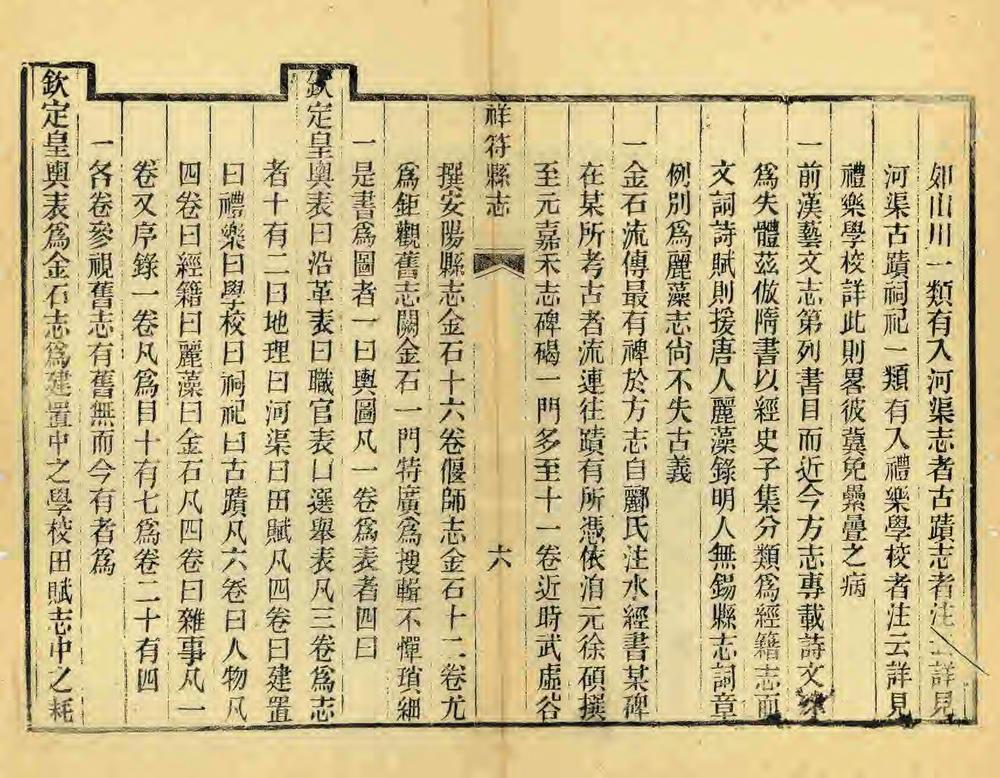 如山川一類有入河渠志者古蹟志者注云詳見
河渠古蹟祠祀一類有入禮樂學校者注云詳見
禮樂學校詳此則畧彼冀免纍疊之病
一前漢藝文志第列書目而近今方志專載詩文殊
爲失體茲倣隋書以經史子集分類爲經籍志而
文詞詩賦則援唐人麗藻錄明人無錫縣志詞章
例別爲麗藻志尙不失古義
一金石流傳最有裨於方志自酈氏注水經書某碑
在某所考古者流連往蹟有所憑依洎元徐碩撰
至元嘉禾志碑碣一門多至十一卷近時武虛谷
祥符縣志
六
撰安陽縣志金石十六卷偃師志金石十二卷尤
爲鉅觀舊志闕金石一門特廣爲搜輯不憚瑣細
一是書爲圖者一曰輿圖凡一卷爲表者四曰
欽定皇輿表曰沿革表曰職官表曰選舉表凡三卷爲志
者十有二曰地理曰河渠曰田賦凡四卷曰建置
曰禮樂曰學校曰祠祀曰古蹟凡六卷曰人物凡
四卷曰經籍曰麗藻曰金石凡四卷曰雜事凡一
卷又序錄一卷凡爲目十有七爲卷二十有四
一各卷參視舊志有舊無而今有者爲
欽定皇輿表爲金石志爲建置中之學校田賦志中之耗